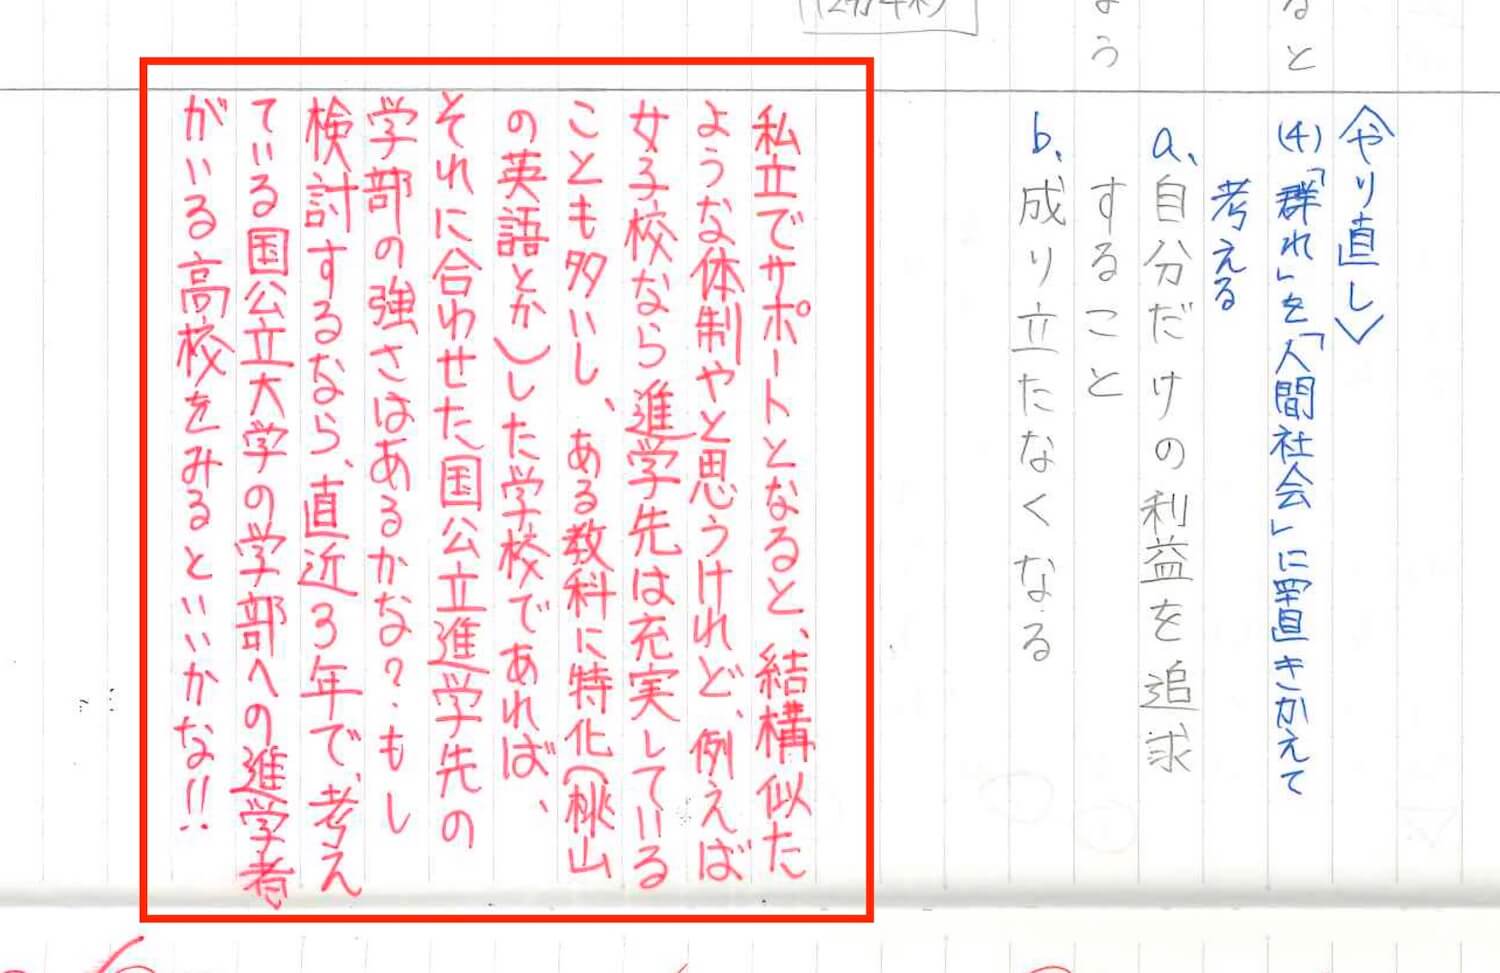 ると
よう
〈やり直し〉
(4)「群れ」を「人間社会」に置きかえて
考える
a、自分だけの利益を追求
すること
b、成り立たなくなる
私立でサポートとなると、結構似た
ような体制やと思うけれど、例えば
女子校なら進学先は充実している
ことも多いし、ある教科に特化(桃山
の英語とか)した学校であれば、
それに合わせた国公立進学先の
学部の強さはあるかな?もし
検討するなら、直近3年で、考え
ている国公立大学の学部への進学者
がいる高校をみるといいかな!!